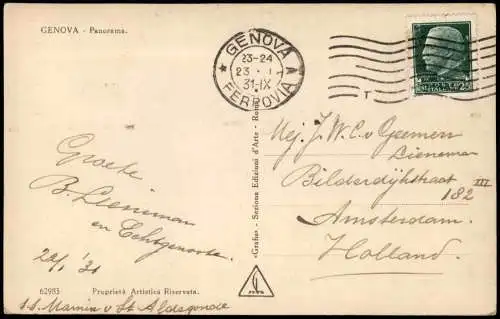 GENOVA - Panorama.
GENOVA
23-24
23 · I
31·IX
FERROVIA
T
Groete
B. Lieneman
en Echtgenoote.
22/1 '31
62983 Proprietà Artistica Riservata.
s.s. Marnix v St Aldegonde
«Grafia» - Sezione Edizioni d'Arte - Roma
Mej. J. W. C. v Geemen
Lieneman
Bilderdijkstraat
182 III
Amsterdam.
Holland.